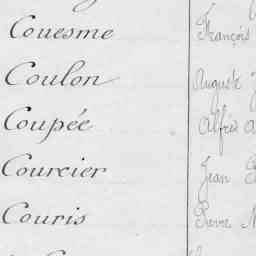 Couesme François
Coulon Auguste
Coupée Alfred
Courcier Jean
Couris Pierre